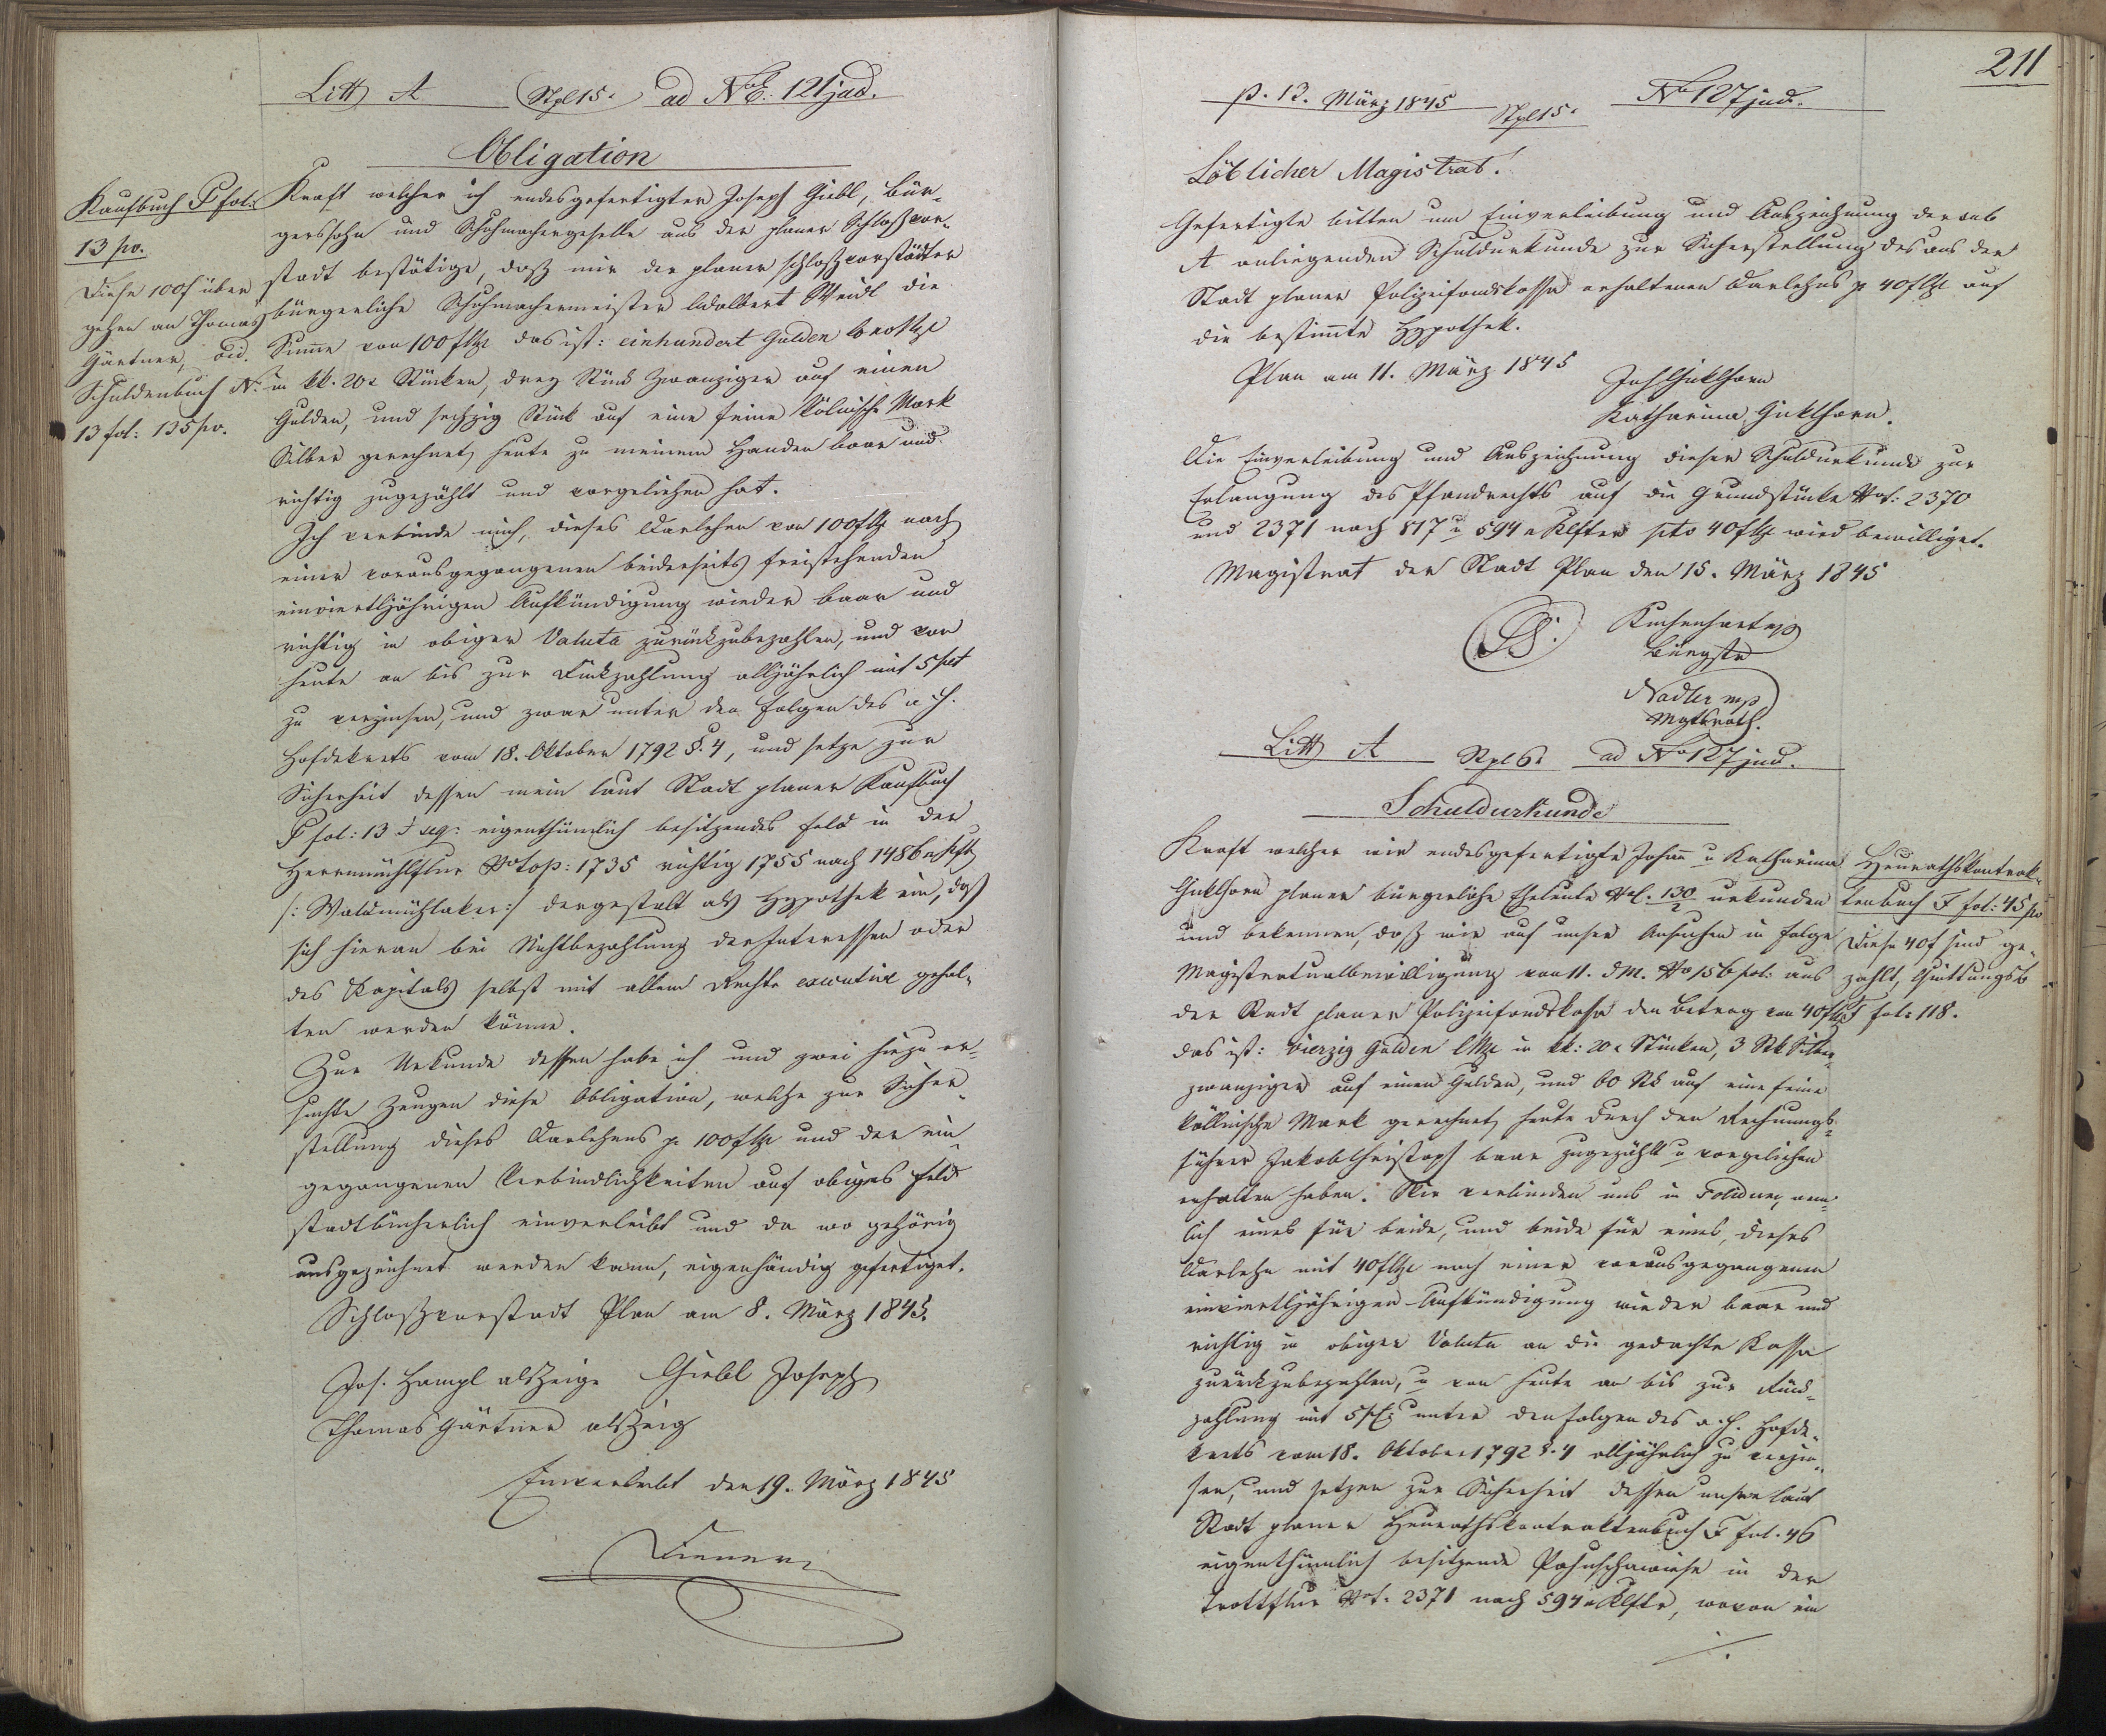 Litt A Stpl 15x ad No E: 121 jud.
Obligation
Kaufbuch P fol:
13 po.
Diese 100 f über
gehen an Thomas
Gärtner, vid.
Schuldenbuch No
13 fol: 135 po.
Kraft welcher ich endesgefertigter Joseph Giebl, Bür-
gerssohn und Schuhmachergeselle aus der planer Schloßvor-
stadt bestätige, daß mir der planer schloßvorstädter
bürgerliche Schuhmachermeister Adalbert Weidl die
Summe von 100 f CMze das ist: einhundert Gulden
in kk. 20x Stücken, drey Stück Zwanziger auf einen
Gulden, und sechzig Stück auf eine feine kölnische Mark
Silber gerechnet, heute zu meinem Handen baar und
richtig zugezählt und vorgeliehen hat.
Ich verbinde mich, dieses Darlehen von 100 f CMze nach
einer vorausgegangenen beiderseits freistehenden
einviertljährigen Aufkündigung wieder baar und
richtig in obiger Valuta zurückzubezahlen, und von
heute an bis zur Rückzahlung alljährlich mit 5 pct
zu verzinsen, und zwar unter den Folgen des a. h.
Hofdekrets vom 18. Oktober 1792 §. 4, und setze zur
Sicherheit dessen mein laut Stadt planer Kaufbuch
P fol: 13 & seq: eigenthümlich besitzendes Feld in der
Herrnmühlflur No top: 1735 richtig 1755 nach 1486 □ Kft
/: Waldmühlaker :/ dergestalt als Hypothek ein, daß
sich hieran bei Nichtbezahlung der Interessen oder
des Kapitals selbst mit allem Rechte executive gehal-
ten werden könne.
Zur Urkunde dessen habe ich und zwei hiezu er-
suchte Zeugen diese Obligation, welche zur Sicher-
stellung dieses Darlehens p 100 f CMze und der ein-
gegangenen Verbindlichkeiten auf obiges Feld
stadtbücherlich einverleibt und da wo gehörig
ausgezeichnet werden kann, eigenhändig gefertiget.
Schloßvorstadt Plan am 8. März 1845.
Jos. Hampl als Zeige Giebl Joseph
Thomas Gärtner als Zeig
Einverleibt den 19. März 1845
211
p. 13. März 1845 Stpl 15x No 127 jud.
Löblicher Magistrat!
Gefertigte bitten um Einverleibung und Auszeichnung der sub
A anliegenden Schuldurkunde zur Sicherstellung des aus der
Stadt planer Polizeifondskassa erhaltenen Darlehns p 40 f CMze auf
die bestimmte Hypothek.
Plan am 11. März 1845
Joh Guklhorn
Katharina Guklhorn.
Die Einverleibung und Auszeichnung dieser Schuldurkunde zur
Erlangung des Pfandrechts auf die Grundstücke No t: 2370
und 2371 nach 817 u 594 □ Klfter pto 40 f CMze wird bewilliget.
Magistrat der Stadt Plan den 15. März 1845
LS.
Bürgstr
Nadler mp
Mgtsrath.
Litt A Stpl 6x ad No 127 jud.
Schuldurkunde
Kraft welcher wir endesgefertigte Johann u Katharina
Guklhorn planer bürgerliche Eheleute No C. 130/2 urkunden
und bekennen, daß wir auf unser Ansuchen in Folge
Magistratualbewilligung vom 11. d M. No 156 pol: aus
der Stadt planer Polizeifondskassa den Betrag von 40 f CMze
das ist: vierzig Gulden CMze in kk: 20x Stücken, 3 Stk Silber-
zwanziger auf einen Gulden, und 60 Stk auf eine feine
köllnische Mark gerechnet, heute durch den Rechnungs-
führer Jakob Christoph baar zugezählt u vorgeliehen
erhalten haben. Wir verbinden uns in Solidum, nem-
lich eines für beide, und beide für eines, dieses
Darlehn mit 40 f CMze nach einer vorausgegangenen
einviertljährigen Aufkündigung wieder baar und
richtig in obiger Valuta an die gedachte Kassa
zurückzubezahlen, u von heute an bis zur Rück-
zahlung mit 5 pC: unter den Folgen des a. h. Hofde-
krets vom 18. Oktober 1792 §. 4 alljährlich zu verzin-
sen, und setzen zur Sicherheit dessen unsre laut
Stadt planer Heurathskontraktenbuch F fol. 46
eigenthümlich besitzende in der
Trottflur No t. 2371 nach 594 □ Klftr, wovon ein
./.
Heurathskontrak-
tenbuch F fol: 45 po
Diese 40 f sind ge-
zahlt, Quittungsb
fol: 118.